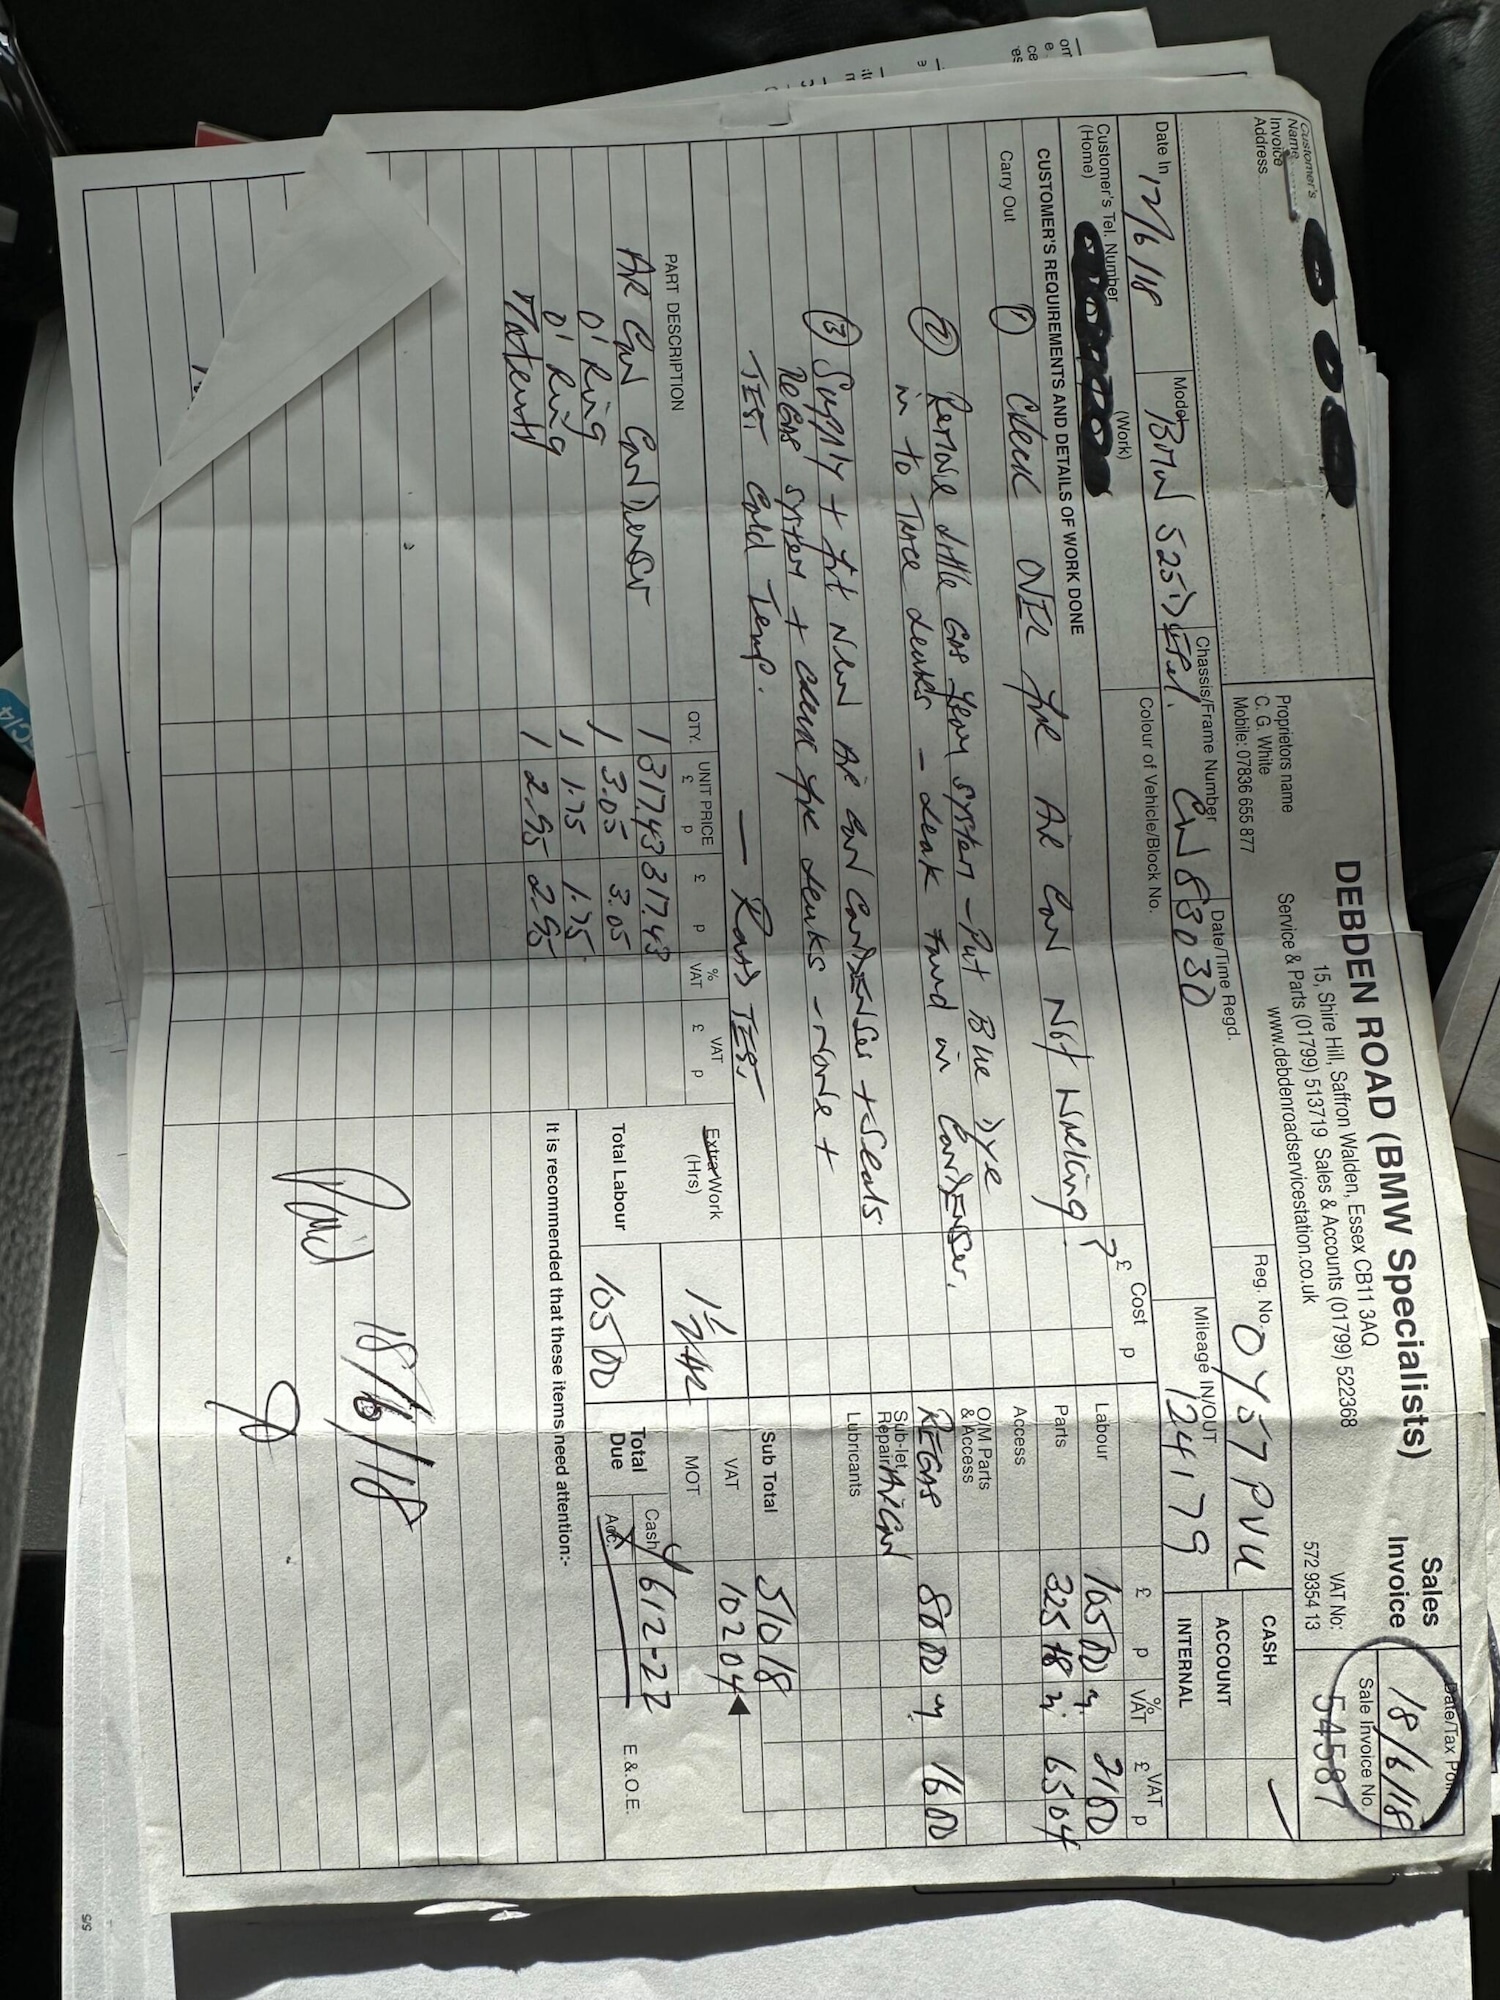 DEBDEN ROAD (BMW Specialists)
15, Shire Hill, Saffron Walden, Essex CB11 3AQ
Service & Parts (01799) 513719 Sales & Accounts (01799) 522368
www.debdenroadservicestation.co.uk
Sales
Invoice
VAT No:
572 9354 13
Date/Tax Poi
18/6/18
Sale Invoice No.
54587
Customer's
Name
Invoice
Address
Proprietors name
C. G. White
Mobile: 07836 655 877
Reg. No. OY57 PVU
CASH
ACCOUNT
INTERNAL
Date In 12/6/18
Model BMW 525D
Chassis/Frame Number CW 83030
Date/Time Regd.
Mileage IN/OUT
124179
Customer's Tel. Number
(Home)
(Work)
Colour of Vehicle/Block No.
CUSTOMER'S REQUIREMENTS AND DETAILS OF WORK DONE
Cost
£ p
£ p % VAT £ VAT p
Carry Out
① Check OVER for Air Con Not Working?
② Remove little Gas from system - Put Blue Dye
in to Trace Leaks - Leak Found in Condenser.
③ Supply + fit New Air Con Condenser + Seals
ReGas system + check for Leaks - None +
TEST Cold Temp. — Road TEST
Labour 105 00 21 00
Parts 325 18 65 04
Access
O/M Parts
& Access
REGAS 80 00 16 00
Sub-let
Repair Air Con
Lubricants
Sub Total 510 18
VAT 102 04
MOT
Total
Due
Cash 612-22
Acc.
E.&.O.E.
PART DESCRIPTION
QTY.
UNIT PRICE
£ p
£ p
% VAT
£ VAT p
Air Con Condenser 1 317.43 317.43
'O' Ring 1 3.05 3.05
'O' Ring 1 1.75 1.75
Materials 1 2.95 2.95
Extra Work
(Hrs)
1½ HR
Total Labour
105 00
It is recommended that these items need attention:-
Paid 18/6/18
5/5